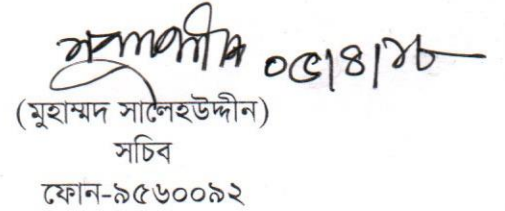 ০৫/৪/১৮
(মুহাম্মদ সালেহউদ্দীন)
সচিব
ফোন-৯৫৬০০৯২